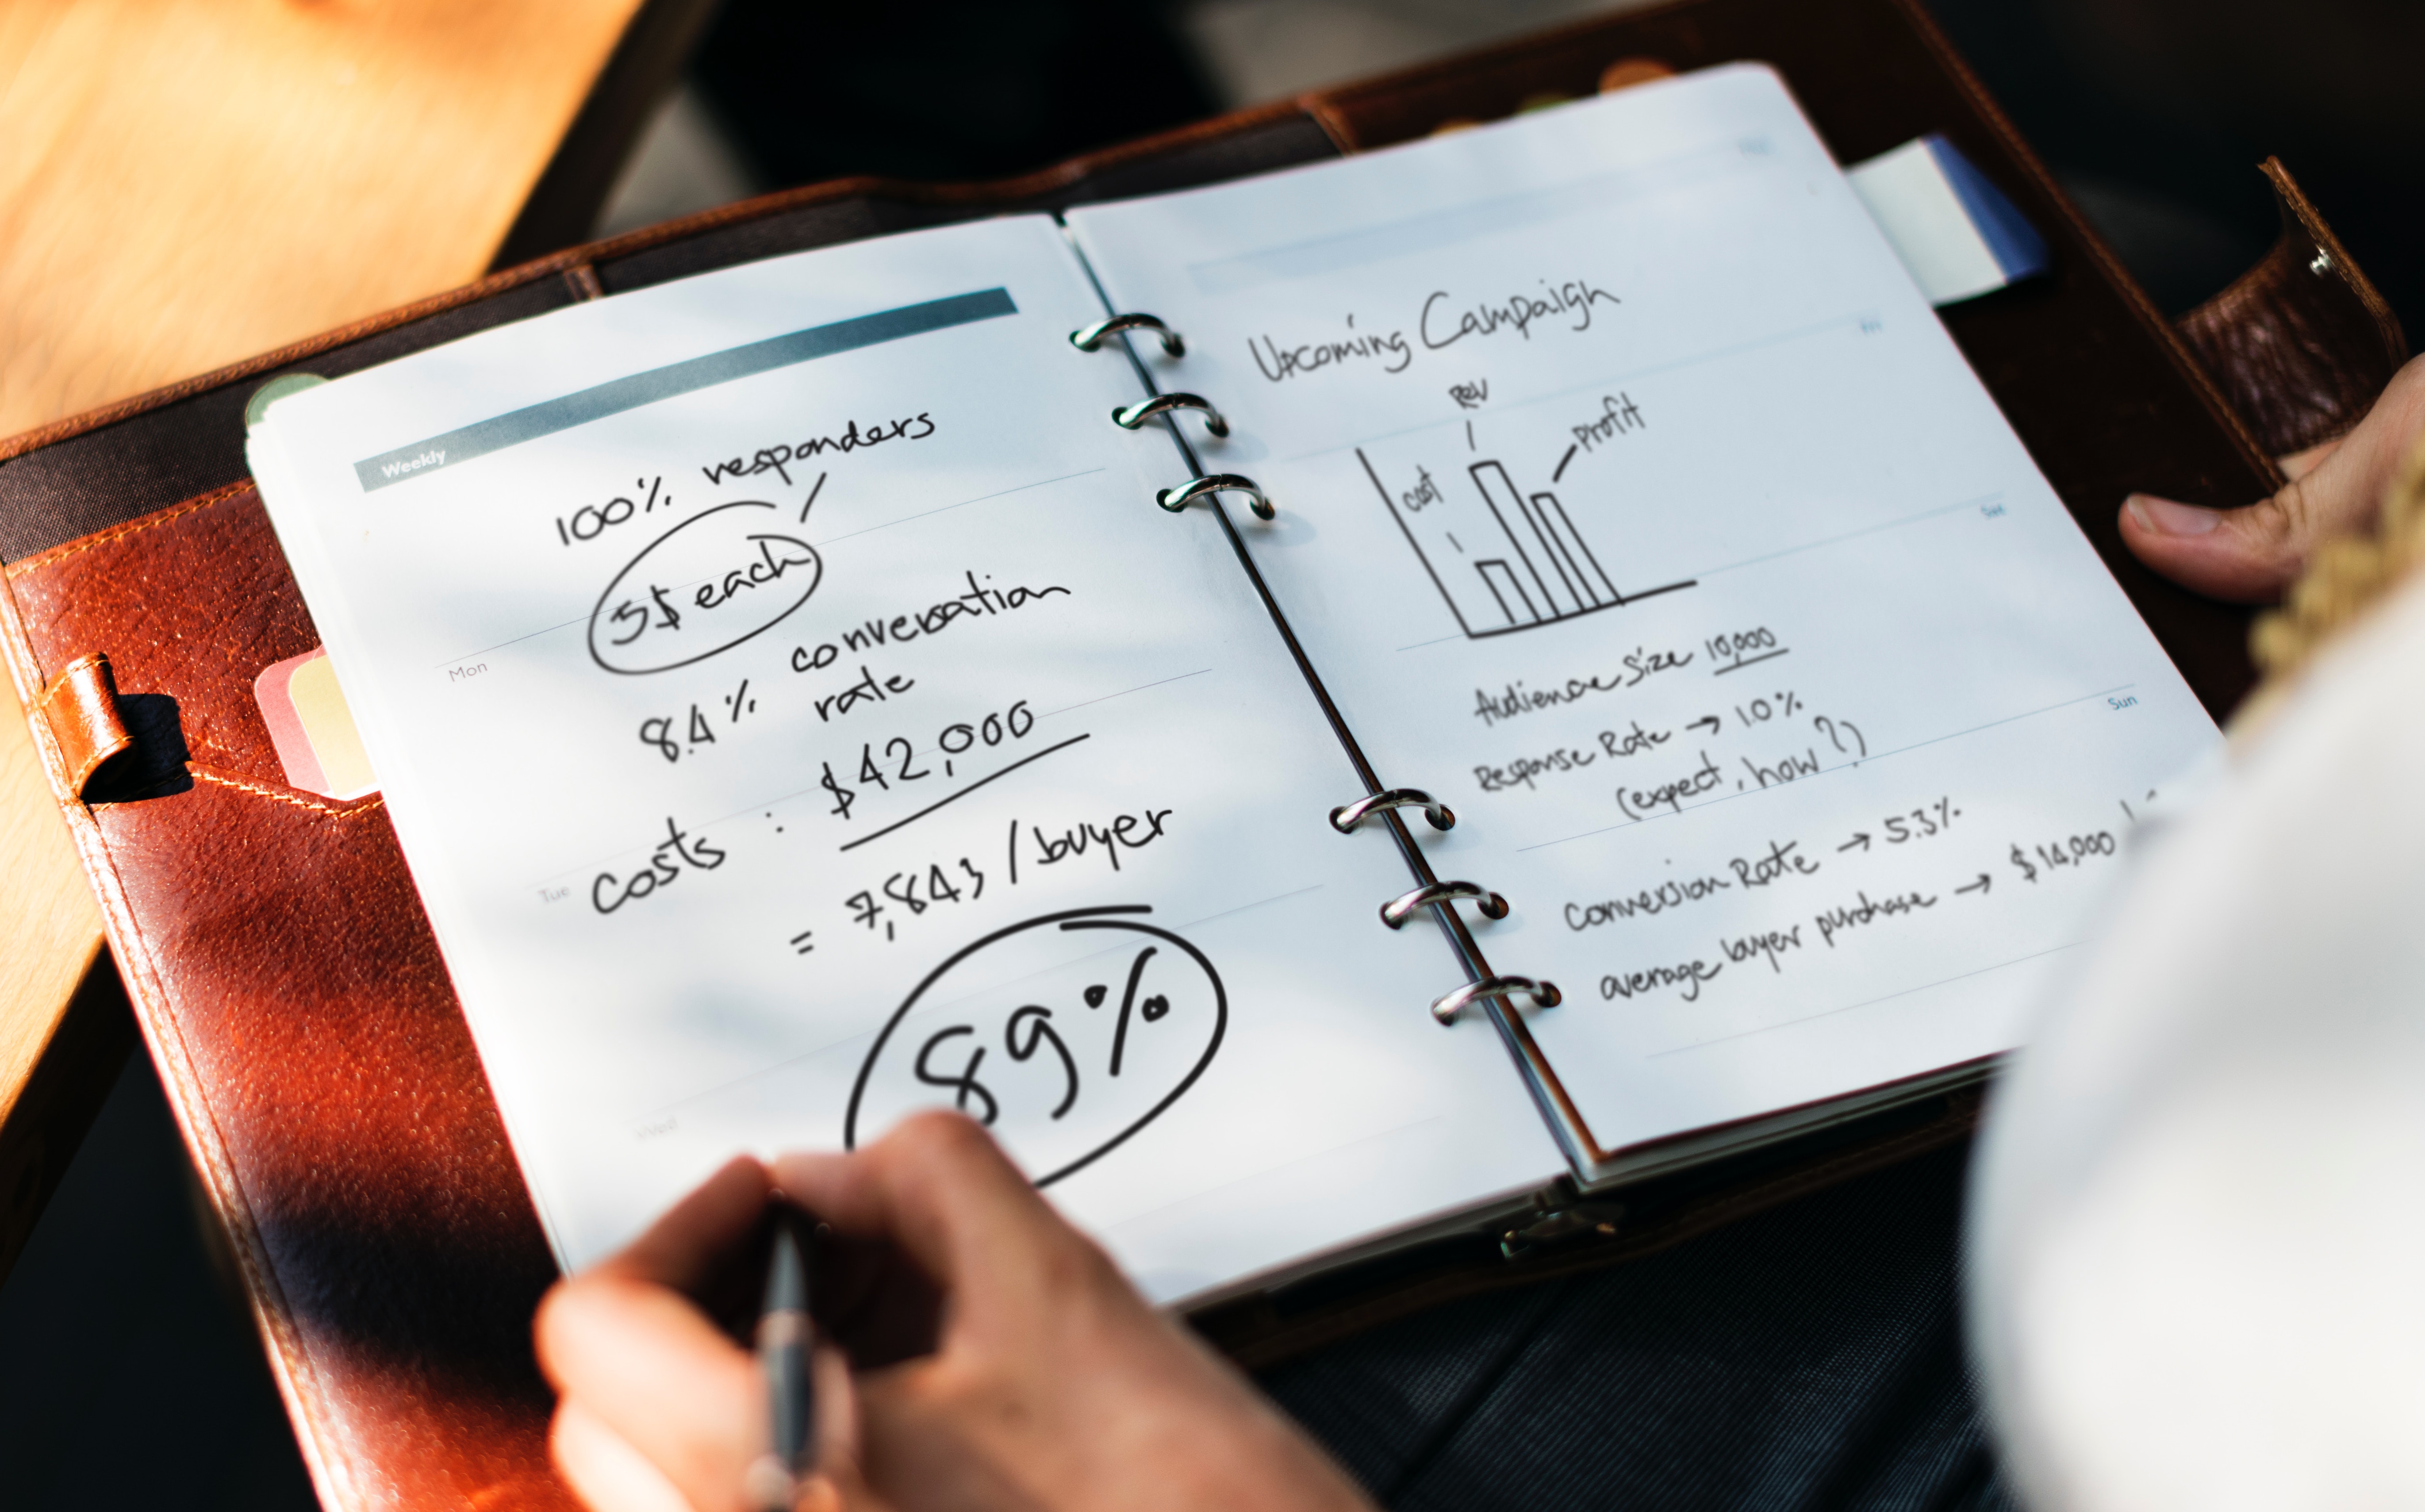 Weekly
100% responders
5$ each
8.4% conversation
rate
Mon
costs : $42,000
Tue
= 7,843 / buyer
89%
Wed
Upcoming Campaign
Rev
cost
Profit
Fri
Sat
Audience Size 10,000
Response Rate → 1.0%
(expect, how?)
Sun
Conversion Rate → 5.3%
average buyer purchase → $14,000